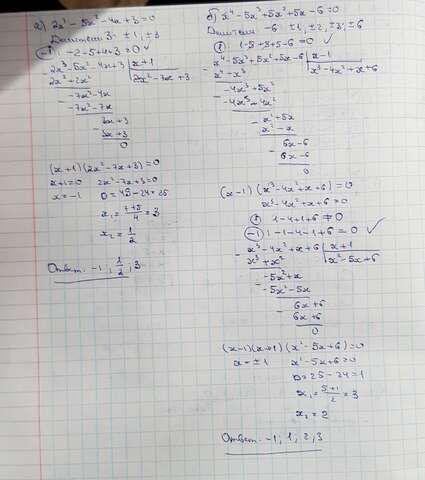 а) 2x³ - 5x² - 4x + 3 = 0
Делители 3: ±1, ±3
-1: -2-5+4+3=0 ✓
2x³-5x²-4x+3 | x+1
2x³+2x² | 2x²-7x+3
-7x²-4x
-7x²-7x
3x+3
3x+3
0
(x+1)(2x²-7x+3)=0
x+1=0 2x²-7x+3=0
x=-1 D=49-24=25
x₁=(7+5)/4=3
x₂=1/2
Ответ: -1; 1/2; 3
б) x⁴ - 5x³ + 5x² + 5x - 6 = 0
Делители -6: ±1, ±2, ±3, ±6
1: 1-5+5+5-6=0 ✓
x⁴-5x³+5x²+5x-6 | x-1
x⁴-x³ | x³-4x²+x+6
-4x³+5x²
-4x³+4x²
x²+5x
x²-x
6x-6
6x-6
0
(x-1)(x³-4x²+x+6)=0
x³-4x²+x+6=0
1: 1-4+1+6≠0
-1: -1-4-1+6=0 ✓
x³-4x²+x+6 | x+1
x³+x² | x²-5x+6
-5x²+x
-5x²-5x
6x+6
6x+6
0
(x-1)(x+1)(x²-5x+6)=0
x=±1 x²-5x+6=0
D=25-24=1
x₁=(5+1)/2=3
x₂=2
Ответ: -1, 1, 2, 3